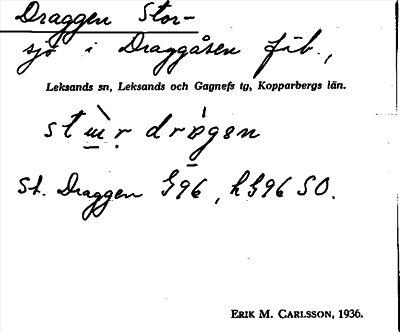 Draggen Stor-
sjö i Draggåsen fäb.,
Leksands sn, Leksands och Gagnefs tg, Kopparbergs län.
drägen
St. Draggen G96, hG96 SO.
ERIK M. CARLSSON, 1936.